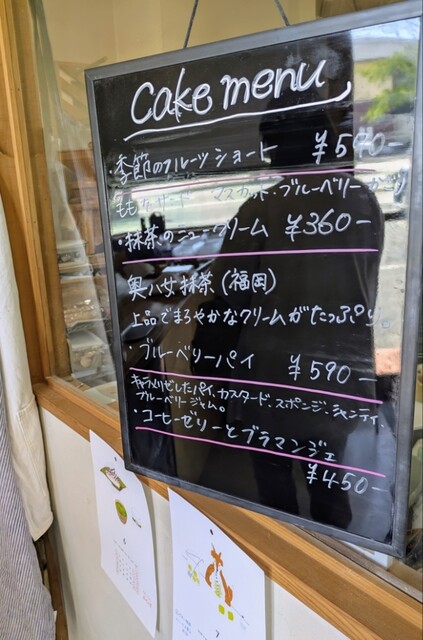 Cake menu
・季節のフルーツショート ¥590-
マスカット・ブルーベリー
・抹茶のニュークリーム ¥360-
奥八女抹茶(福岡)
上品でまろやかなクリームがたっぷり。
ブルーベリーパイ ¥590-
キャラメリゼしたパイ、カスタード、スポンジ、シャンティ、
ブルーベリージャム。
・コーヒーゼリーとブラマンジェ
¥450-